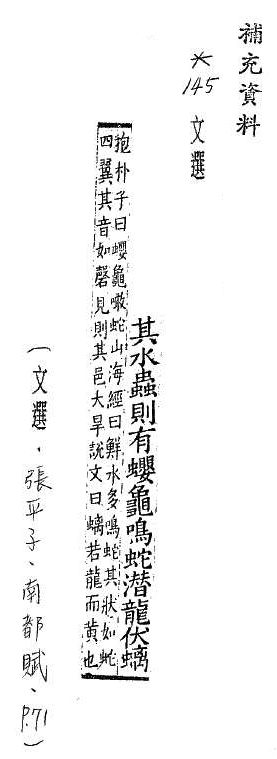 補充資料
*145 文選
其水蟲則有蠳龜鳴蛇潛龍伏螭
抱朴子曰蠳龜噉蛇山海經曰鮮水多鳴蛇其狀如蛇
四翼其音如磬見則其邑大旱說文曰螭若龍而黃也
(文選．張平子．南都賦．P.71)